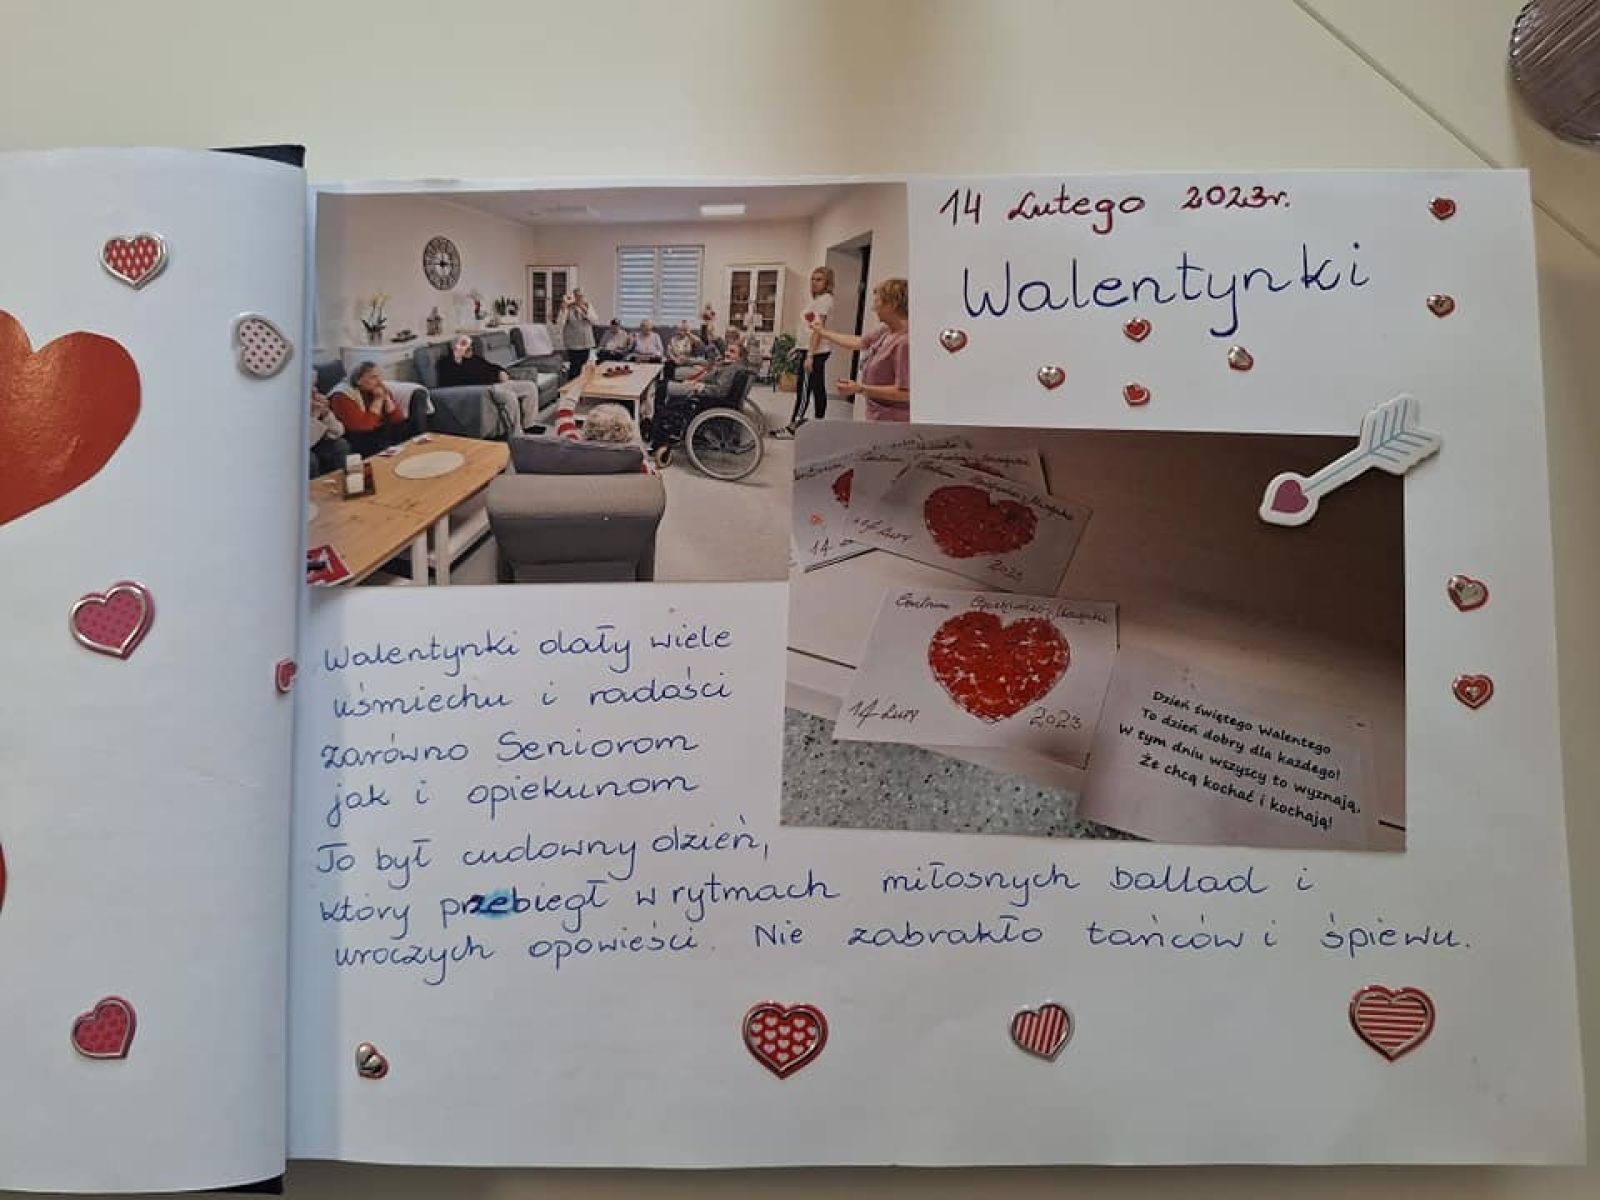 14 Lutego 2023r.
Walentynki
Centrum
14 Luty
2023
14
Centrum Opiekuńczo
14 Luty 2023
Dzień świętego Walentego
To dzień dobry dla każdego!
W tym dniu wszyscy to wyznają,
Że chcą kochać i kochają!
Walentynki dały wiele
uśmiechu i radości
zarówno Seniorom
jak i opiekunom
To był cudowny dzień,
który przebiegł w rytmach miłosnych ballad i
uroczych opowieści. Nie zabrakło tańców i śpiewu.